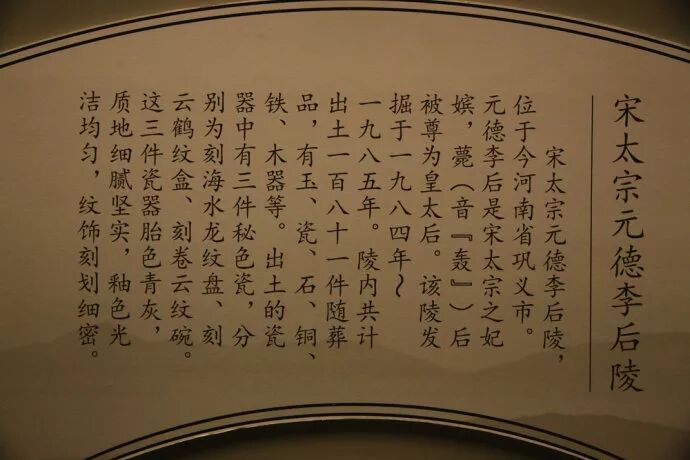 宋太宗元德李后陵
宋太宗元德李后陵，
位于今河南省巩义市。
元德李后是宋太宗之妃
嫔，薨（音『轰』）后
被尊为皇太后。该陵发
掘于一九八四年～
一九八五年。陵内共计
出土一百八十一件随葬
品，有玉、瓷、石、铜、
铁、木器等。出土的瓷
器中有三件秘色瓷，分
别为刻海水龙纹盘、刻
云鹤纹盒、刻卷云纹碗。
这三件瓷器胎色青灰，
质地细腻坚实，釉色光
洁均匀，纹饰刻划细密。